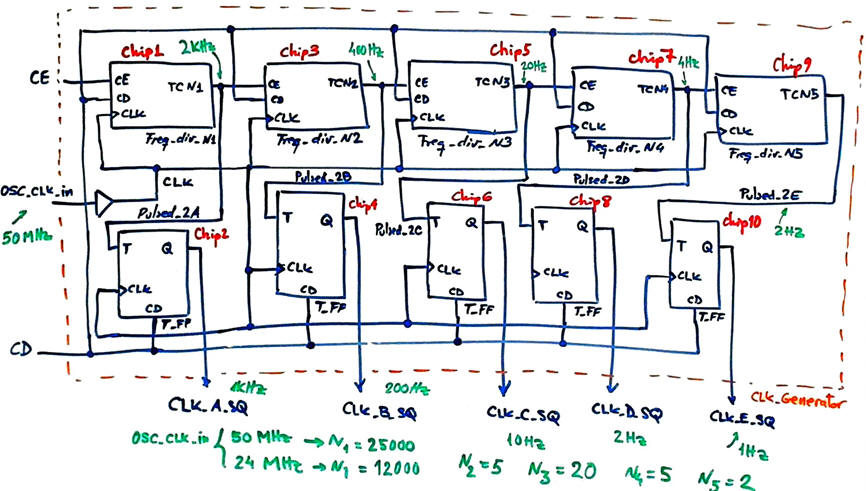 Chip1 2KHz Chip3 400Hz Chip5 20Hz Chip7 4Hz Chip9
CE CE TCN1 CE TCN2 CE TCN3 CE TCN4 CE TCN5
CD CD CD CD CD
CLK CLK CLK CLK CLK
Freq_div_N1 Freq_div_N2 Freq_div_N3 Freq_div_N4 Freq_div_N5
OSC_CLK_in CLK Pulsed_2B Pulsed_2D Pulsed_2E
50 MHz Pulsed_2A Chip4 Pulsed_2C Chip6 Chip8 2Hz
T Q Chip2 T Q T Q T Q T Q Chip10
CLK CLK CLK CLK CLK
CD T_FF CD T_FF CD T_FF CD T_FF CD T_FF
CD
1KHz 200Hz CLK_Generator
CLK_A_SQ CLK_B_SQ CLK_C_SQ CLK_D_SQ CLK_E_SQ
10Hz 2Hz 1Hz
OSC_CLK_in { 50 MHz → N1 = 25000
24 MHz → N1 = 12000 N2=5 N3=20 N4=5 N5=2